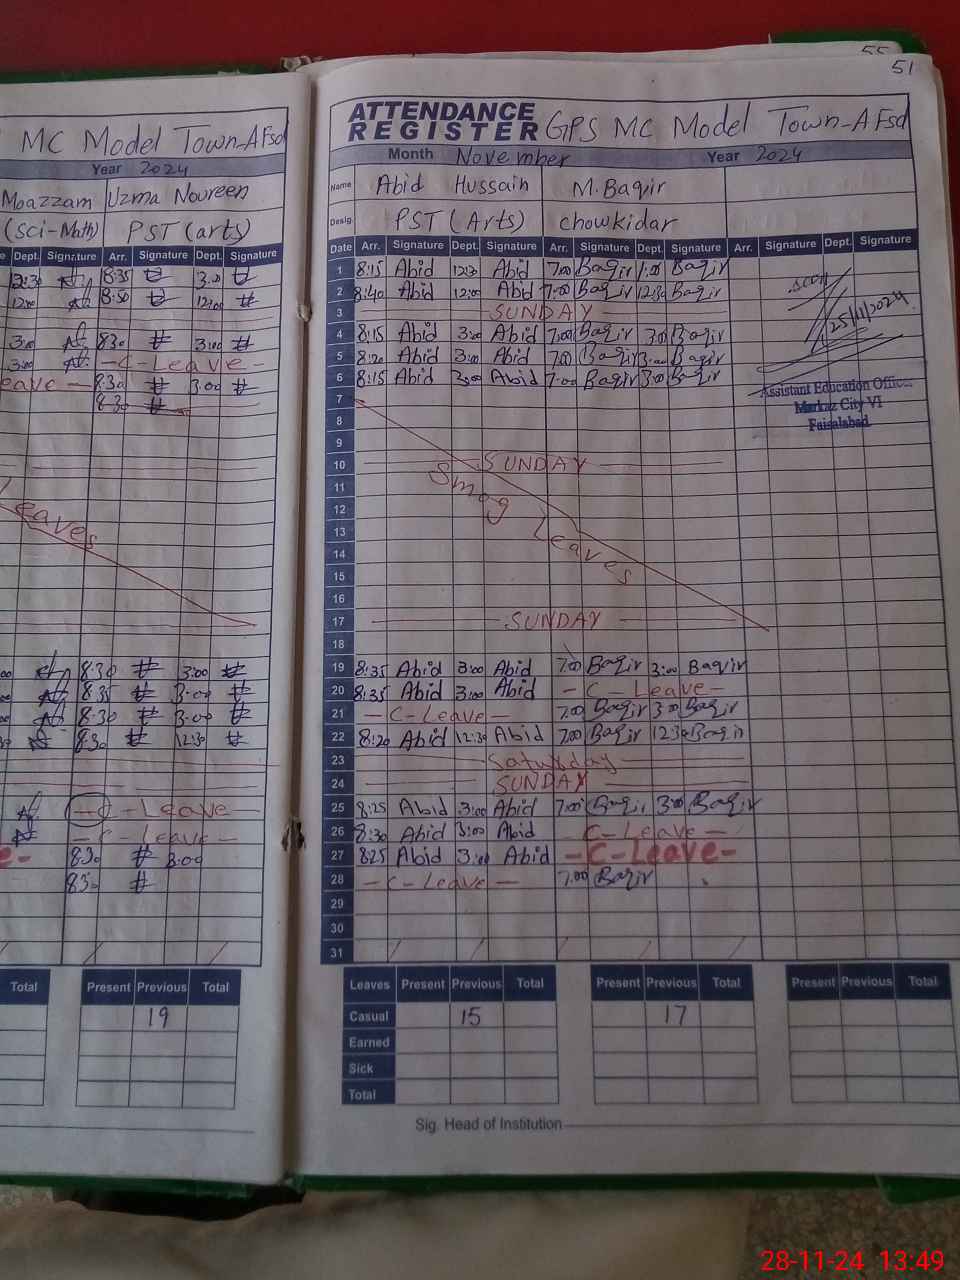 55
51
MC Model Town-A Fsd
Year 2024
Moazzam Uzma Noureen
(Sci-Math) PST (arts)
Dept. Signature Arr. Signature Dept. Signature
12:30 8:35 3:00
12:00 8:30 12:00
3:00 830 3:00
3:00 - C - Leave -
eave - 8:30 3:00
8:30
Leaves
8:30 3:00
8:35 3:00
8:30 3:00
8:30 12:30
- C - Leave -
- C - Leave -
e - 8:30 3:00
8:30
Total Present Previous Total
19
ATTENDANCE
REGISTER GPS MC Model Town-A Fsd
Month November Year 2024
Name Abid Hussain M.Baqir
Desig. PST (Arts) chowkidar
Date Arr. Signature Dept. Signature Arr. Signature Dept. Signature Arr. Signature Dept. Signature
1 8:15 Abid 12:30 Abid 7:00 Baqir 1:00 Baqir
2 8:40 Abid 12:00 Abid 7:00 Baqir 12:30 Baqir
3 SUNDAY
4 8:15 Abid 3:00 Abid 7:00 Baqir 3:00 Baqir
5 8:20 Abid 3:00 Abid 7:00 Baqir 3:00 Baqir
6 8:15 Abid 3:00 Abid 7:00 Baqir 3:00 Baqir
seen
25/11/2024
Assistant Education Officer
Markaz City VI
Faisalabad
7
8
9
10 SUNDAY
11 Smog
12
13 Leaves
14
15
16
17 SUNDAY
18
19 8:35 Abid 3:00 Abid 7:00 Baqir 3:00 Baqir
20 8:35 Abid 3:00 Abid - C - Leave -
21 - C - Leave - 7:00 Baqir 3:00 Baqir
22 8:20 Abid 12:30 Abid 7:00 Baqir 12:30 Baqir
23 Saturday
24 SUNDAY
25 8:25 Abid 3:00 Abid 7:00 Baqir 3:00 Baqir
26 8:30 Abid 3:00 Abid C - Leave -
27 825 Abid 3:00 Abid - C - Leave -
28 - C - Leave - 7:00 Baqir
29
30
31
Leaves Present Previous Total Present Previous Total Present Previous Total
Casual 15 17
Earned
Sick
Total
Sig. Head of Institution
28-11-24 13:49